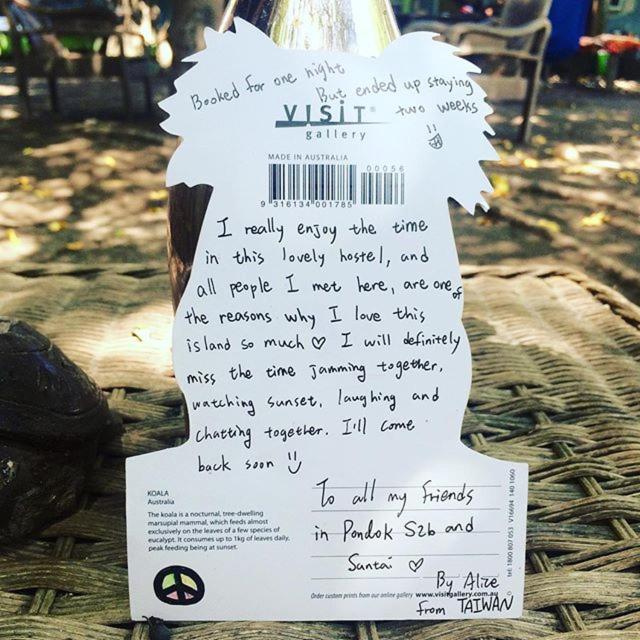 Booked for one night
But ended up staying
two weeks
VISIT®
gallery
MADE IN AUSTRALIA
00056
9 316134 001785
I really enjoy the time
in this lovely hostel, and
all people I met here, are one of
the reasons why I love this
island so much ♡ I will definitely
miss the time jamming together,
watching sunset, laughing and
chatting together. I'll come
back soon
KOALA
Australia
The koala is a nocturnal, tree-dwelling
marsupial mammal, which feeds almost
exclusively on the leaves of a few species of
eucalypt. It consumes up to 1kg of leaves daily,
peak feeding being at sunset.
To all my friends
in Pondok S2b and
Santai ♡
By Alice
from TAIWAN
Order custom prints from our online gallery www.visitgallery.com.au
tel: 1800 807 053 V16694 140 1060